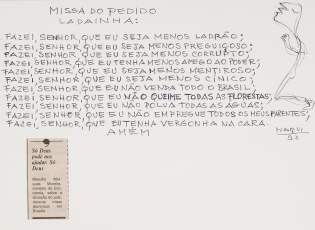 MISSA DO PEDIDO
LADAINHA:
FAZEI, SENHOR, QUE EU SEJA MENOS LADRÃO;
FAZEI, SENHOR, QUE EU SEJA MENOS PREGUIÇOSO;
FAZEI, SENHOR, QUE EU SEJA MENOS CORRUPTO;
FAZEI, SENHOR, QUE EU TENHA MENOS APEGO AO PODER;
FAZEI, SENHOR, QUE EU SEJA MENOS MENTIROSO;
FAZEI, SENHOR, QUE EU SEJA MENOS CÍNICO;
FAZEI, SENHOR, QUE EU NÃO VENDA TODO O BRASIL;
FAZEI, SENHOR, QUE EU NÃO QUEIME TODAS AS FLORESTAS;
FAZEI, SENHOR, QUE EU NÃO POLUA TODAS AS ÁGUAS;
FAZEI, SENHOR, QUE EU NÃO EMPREGUE TODOS OS MEUS PARENTES;
FAZEI, SENHOR, QUE EU TENHA VERGONHA NA CARA.
AMÉM
HAQUI
92
Só Deus
pode nos
ajudar. Só
Deus
Marcílio Mar-
ques Moreira,
ministro da Eco-
nomia, sobre a
situação do país,
durante missa
dominical em
Brasília